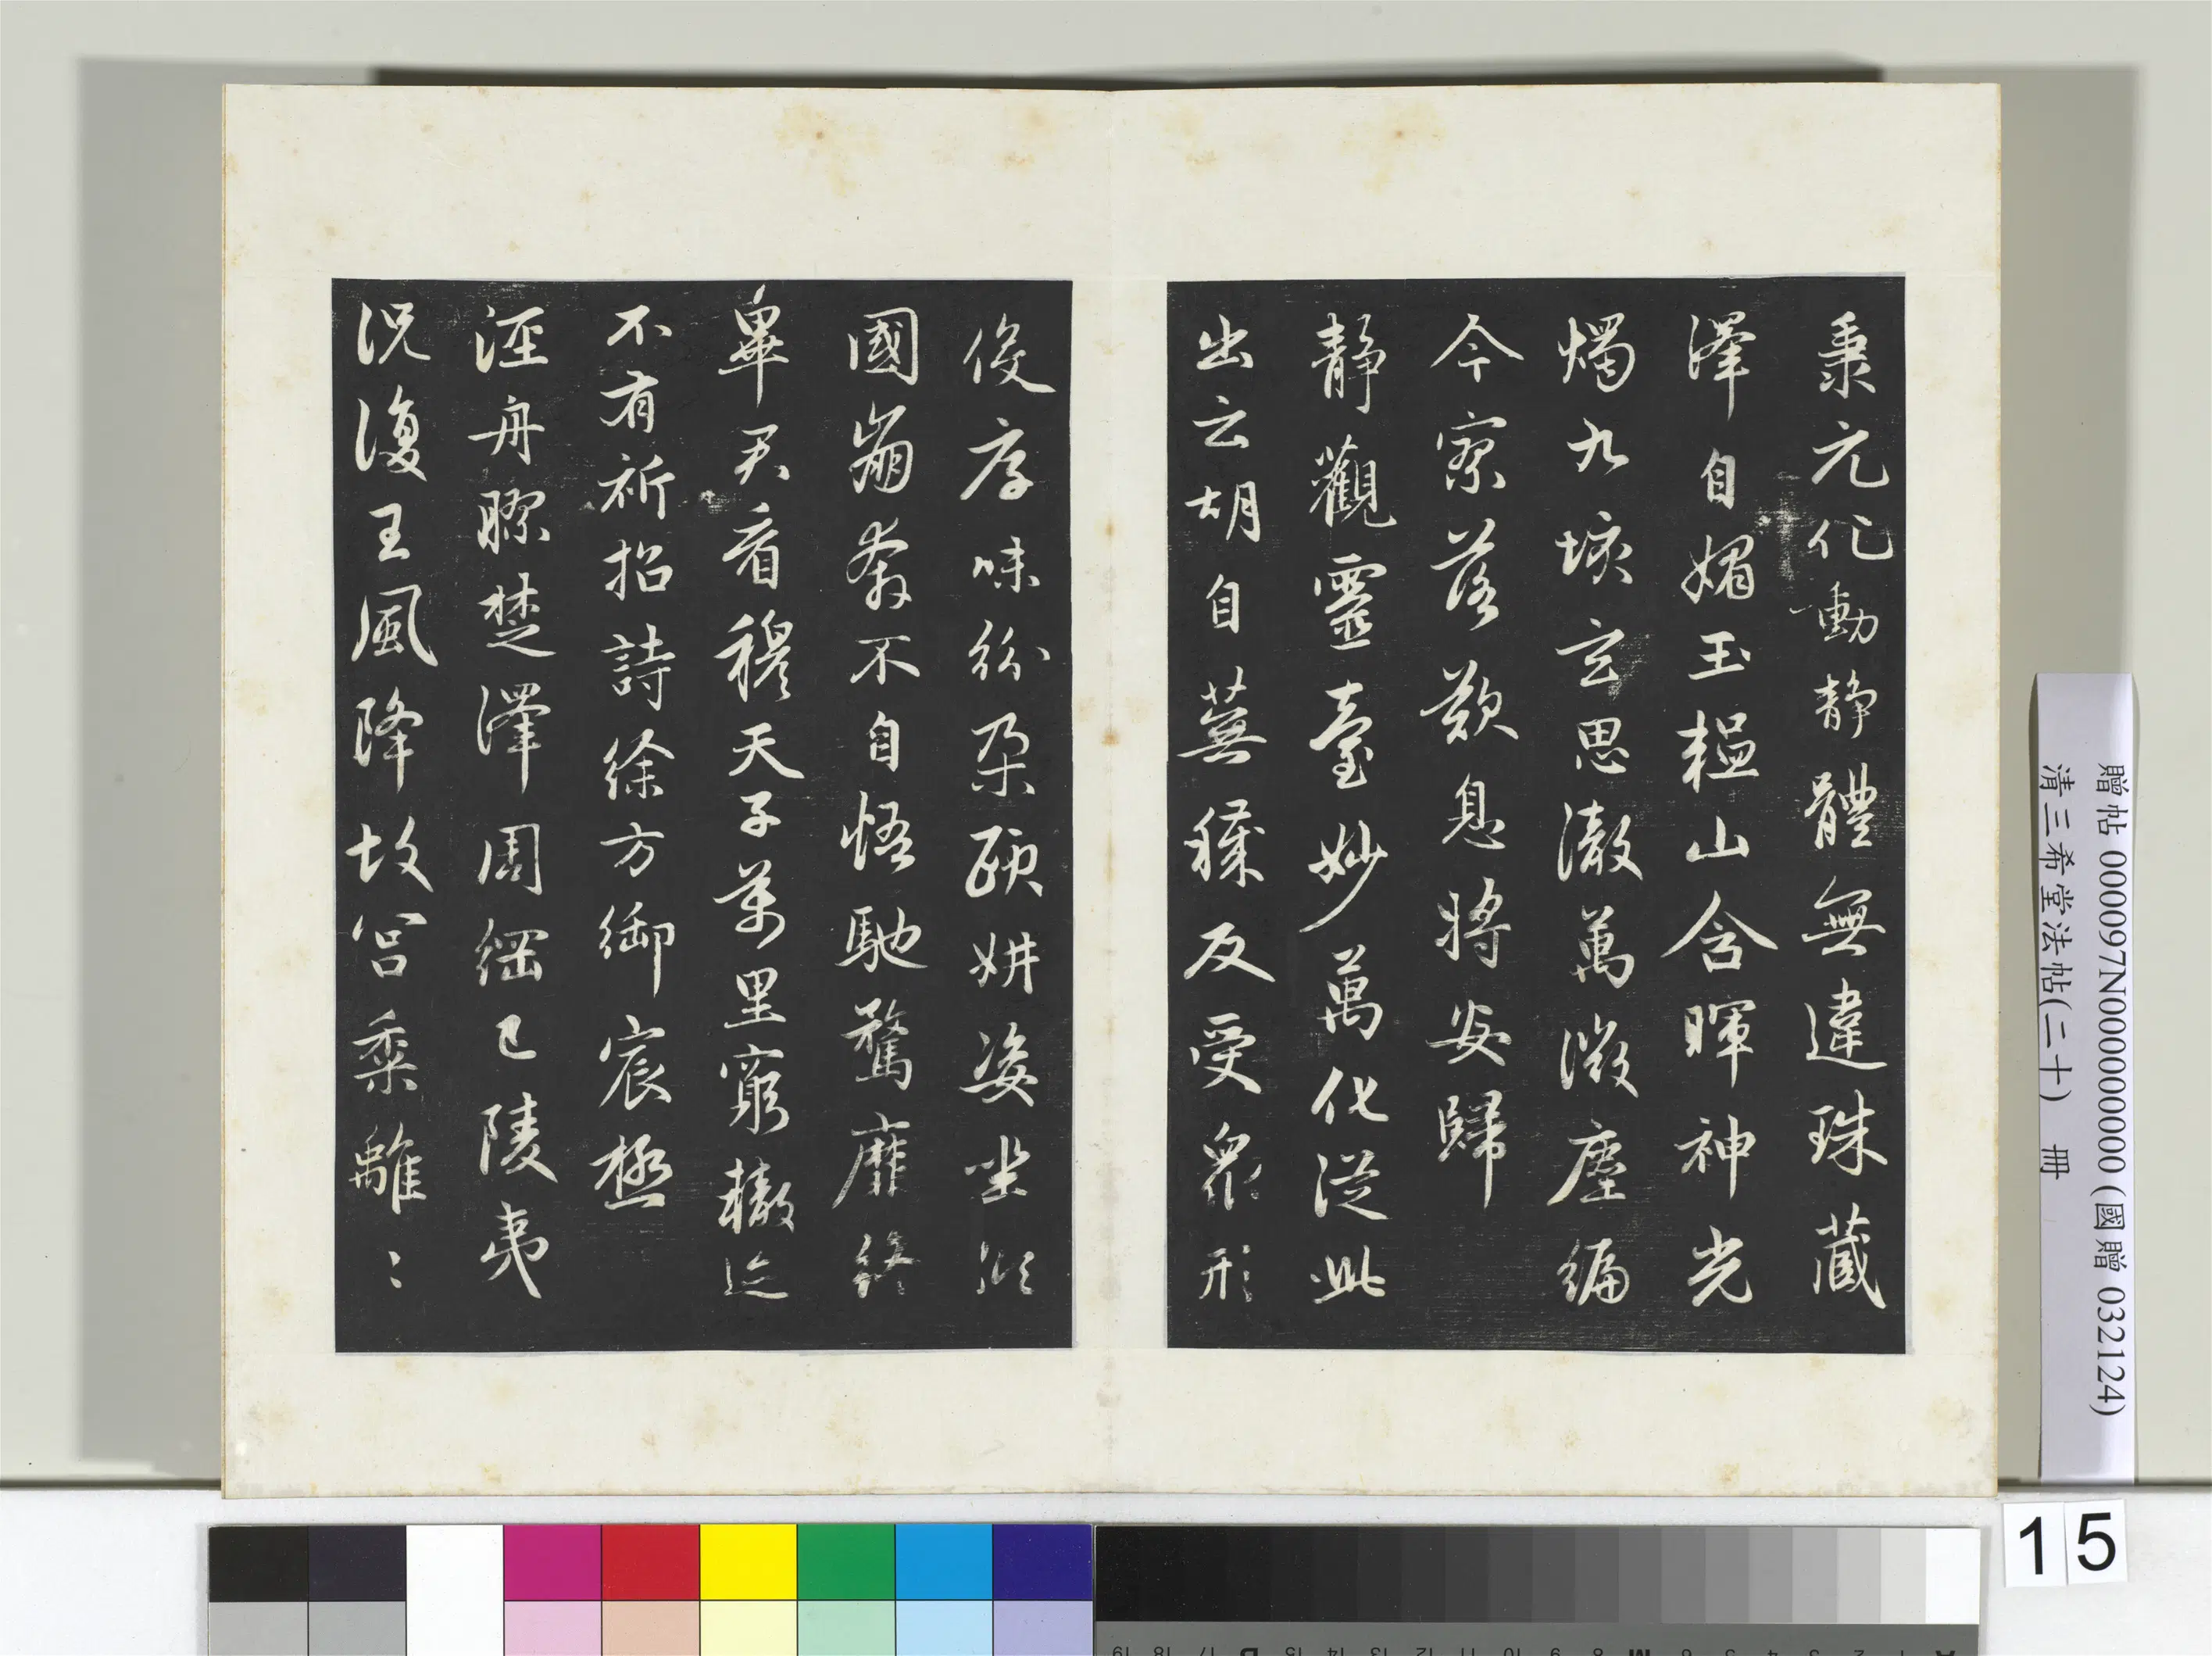 秉元化動靜體無違珠藏
澤自媚玉韞山含暉神光
燭九垓玄思澈萬微塵編
今寥落歎息將安歸
靜觀靈臺妙萬化從此
出云胡自蕪穢反受衆形
役厚味紛朶頤妍姿坐傾
國崩奔不自悟馳騖靡終
畢君看穆天子萬里窮轍迹
不有祈招詩徐方御宸極
涇舟膠楚澤周綱已陵夷
況復王風降故宮黍離〻
贈帖 000097N000000000 (國贈 032124)
清三希堂法帖(二十) 冊
15